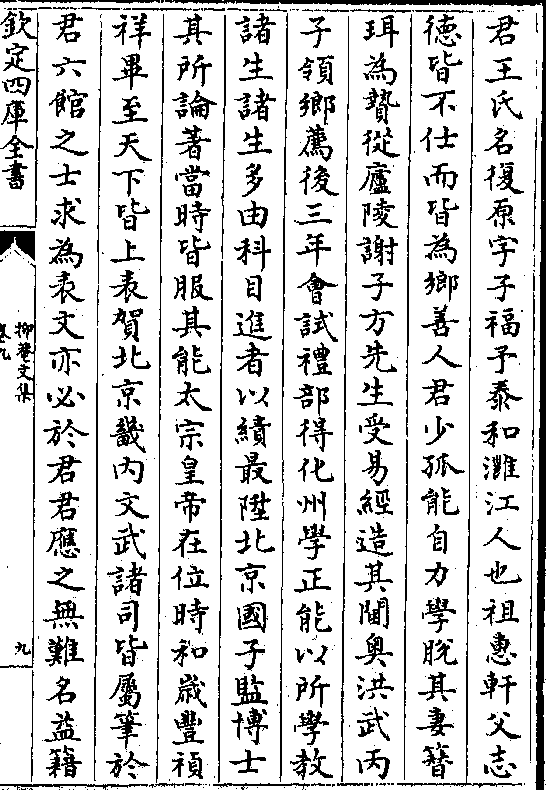 君王氏名復原字子福予泰和灘江人也祖惠軒父志
德皆不仕而皆為鄉善人君少孤能自力學脫其妻簪
珥為贄從廬陵謝子方先生受易經造其閫奥洪武丙
子領鄉薦後三年會試禮部得化州學正能以所學教
諸生諸生多由科目進者以績最陞北京國子監博士
其所論著當時皆服其能太宗皇帝在位時和歲豐禎
祥畢至天下皆上表賀北京畿内文武諸司皆屬筆於
君六館之士求為表文亦必於君君應之無難名益籍
欽定四庫全書
抑菴文集
卷九
九